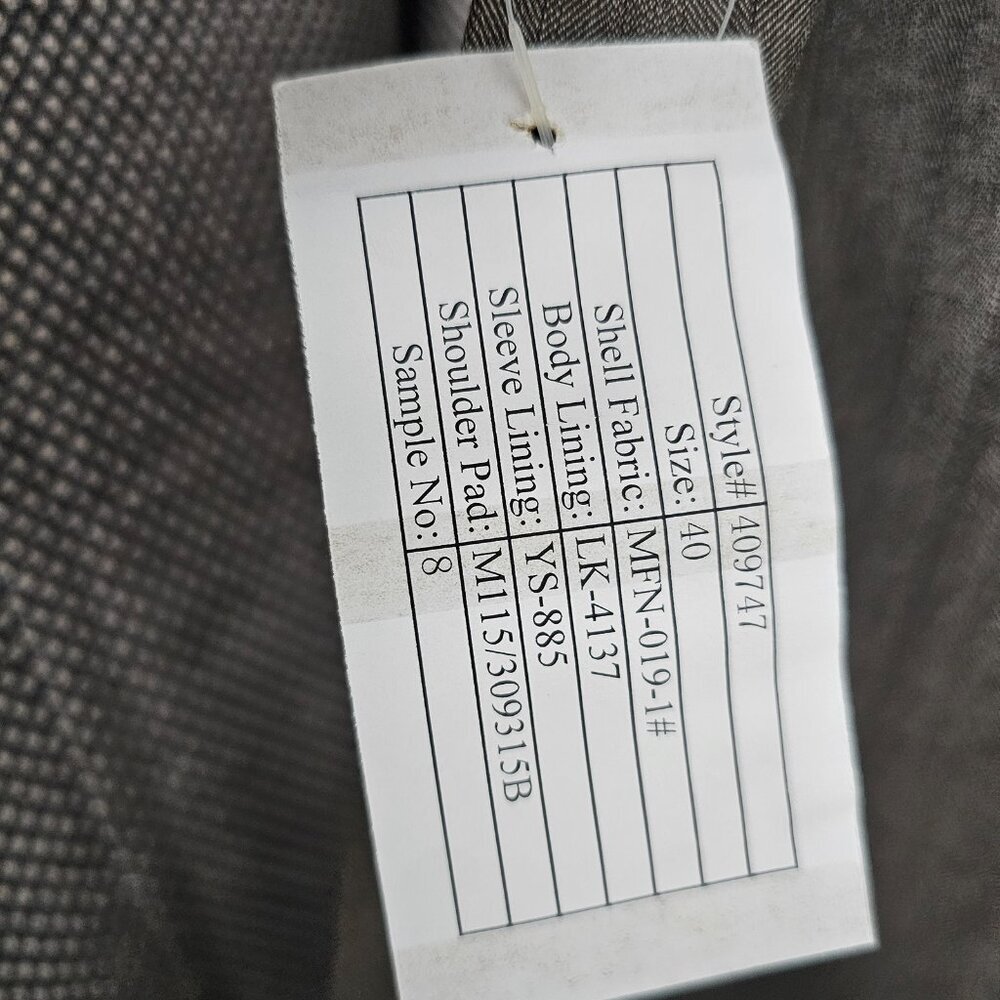 Style# 409747
Size: 40
Shell Fabric: MFN-019-1#
Body Lining: LK-4137
Sleeve Lining: YS-885
Shoulder Pad: M115/309315B
Sample No: 8